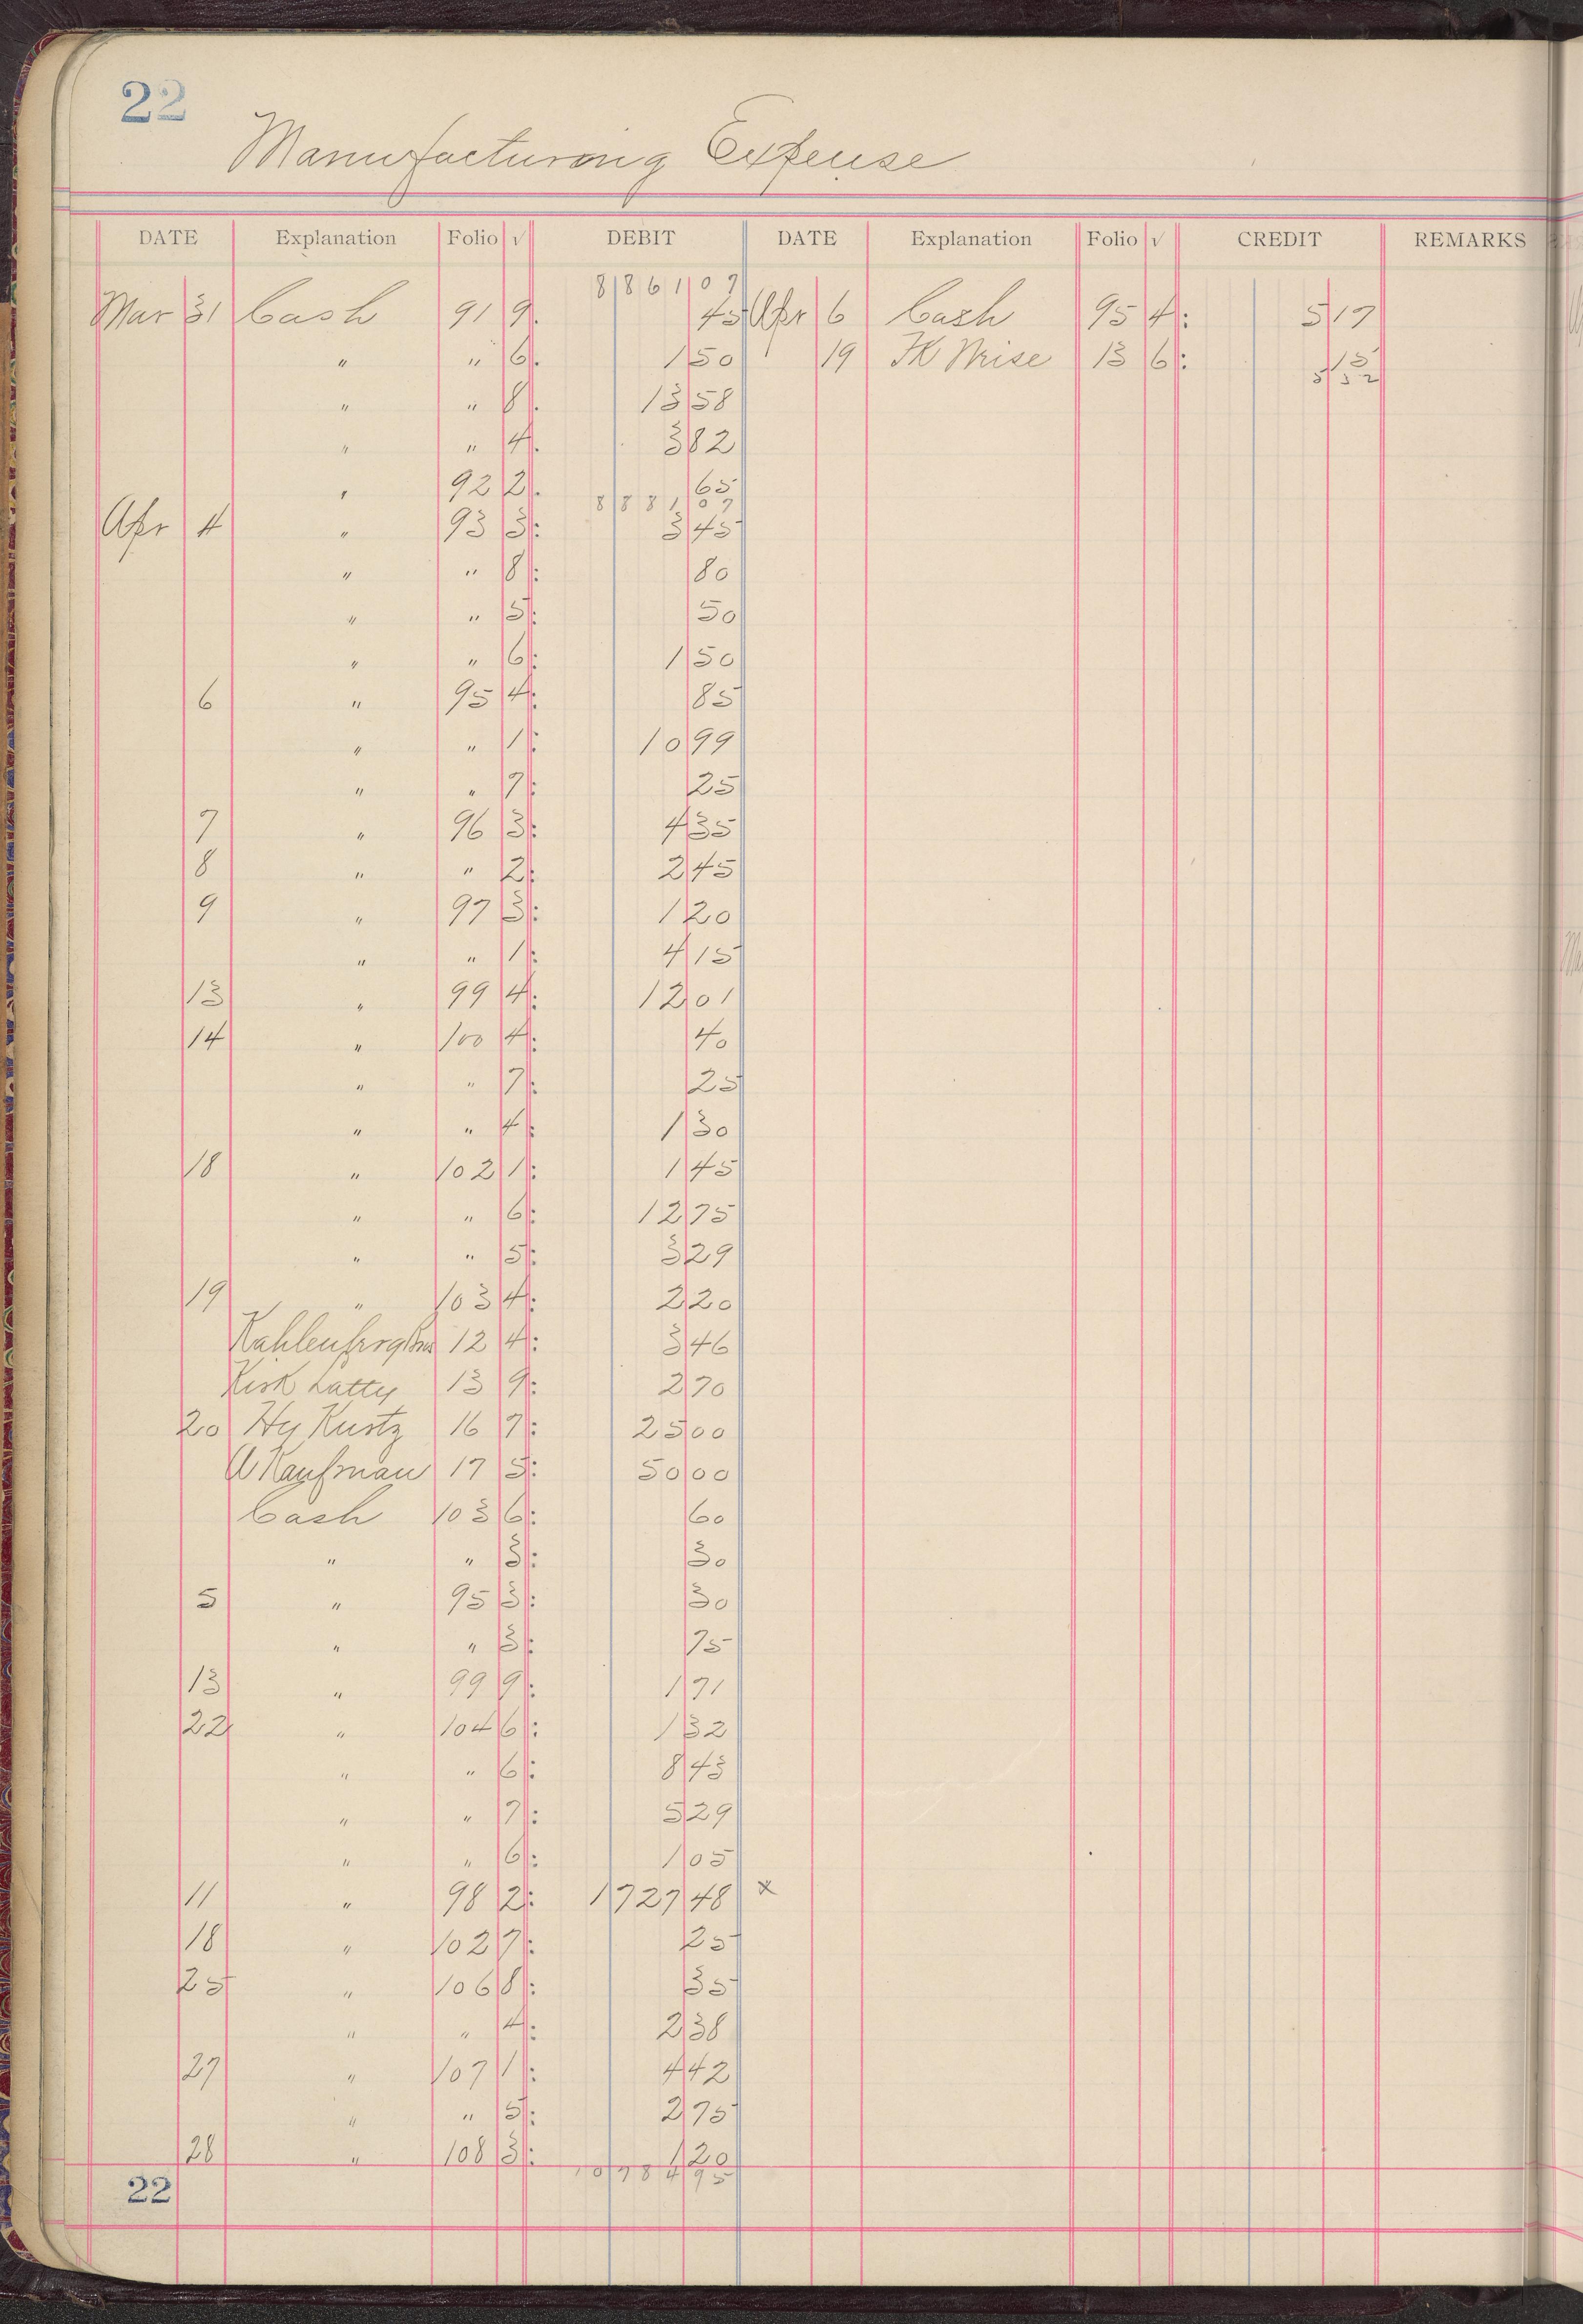 22
Manufacturing Expense
DATE Explanation Folio √ DEBIT DATE Explanation Folio √ CREDIT REMARKS
8 861 07
Mar 31 Cash 91 9. 45 Apr 6 Cash 95 4: 5 17
" " 6. 1 50 19 13 6: 15
5 32
" " 8. 13 58
" " 4. 3 82
" 92 2. 65
8 881 07
Apr 4 " 93 3: 3 45
" " 8: 80
" " 5: 50
" " 6: 1 50
6 " 95 4: 85
" " 1: 10 99
" " 7: 25
7 " 96 3: 4 35
8 " " 2: 2 45
9 " 97 3: 1 20
" " 1: 4 15
13 " 99 4: 12 01
14 " 100 4: 40
" " 7: 25
" " 4: 1 30
18 " 102 1: 1 45
" " 6: 12 75
" " 5: 3 29
19 " 103 4: 2 20
Kahlenbrg Bros 12 4: 3 46
Kirk Latty 13 9: 2 70
20 Hy Kurtz 16 7: 25 00
A Kaufman 17 5: 50 00
Cash 103 6: 60
" " 3: 30
5 " 95 3: 30
" " 3: 75
13 " 99 9: 1 71
22 " 104 6: 1 32
" " 6: 8 43
" " 7: 5 29
" " 6: 1 05
11 " 98 2: 1 727 48 x
18 " 102 7: 25
25 " 106 8: 35
" " 4: 2 38
27 " 107 1: 4 42
" " 5: 2 75
28 " 108 3: 1 20
10 784 95
22